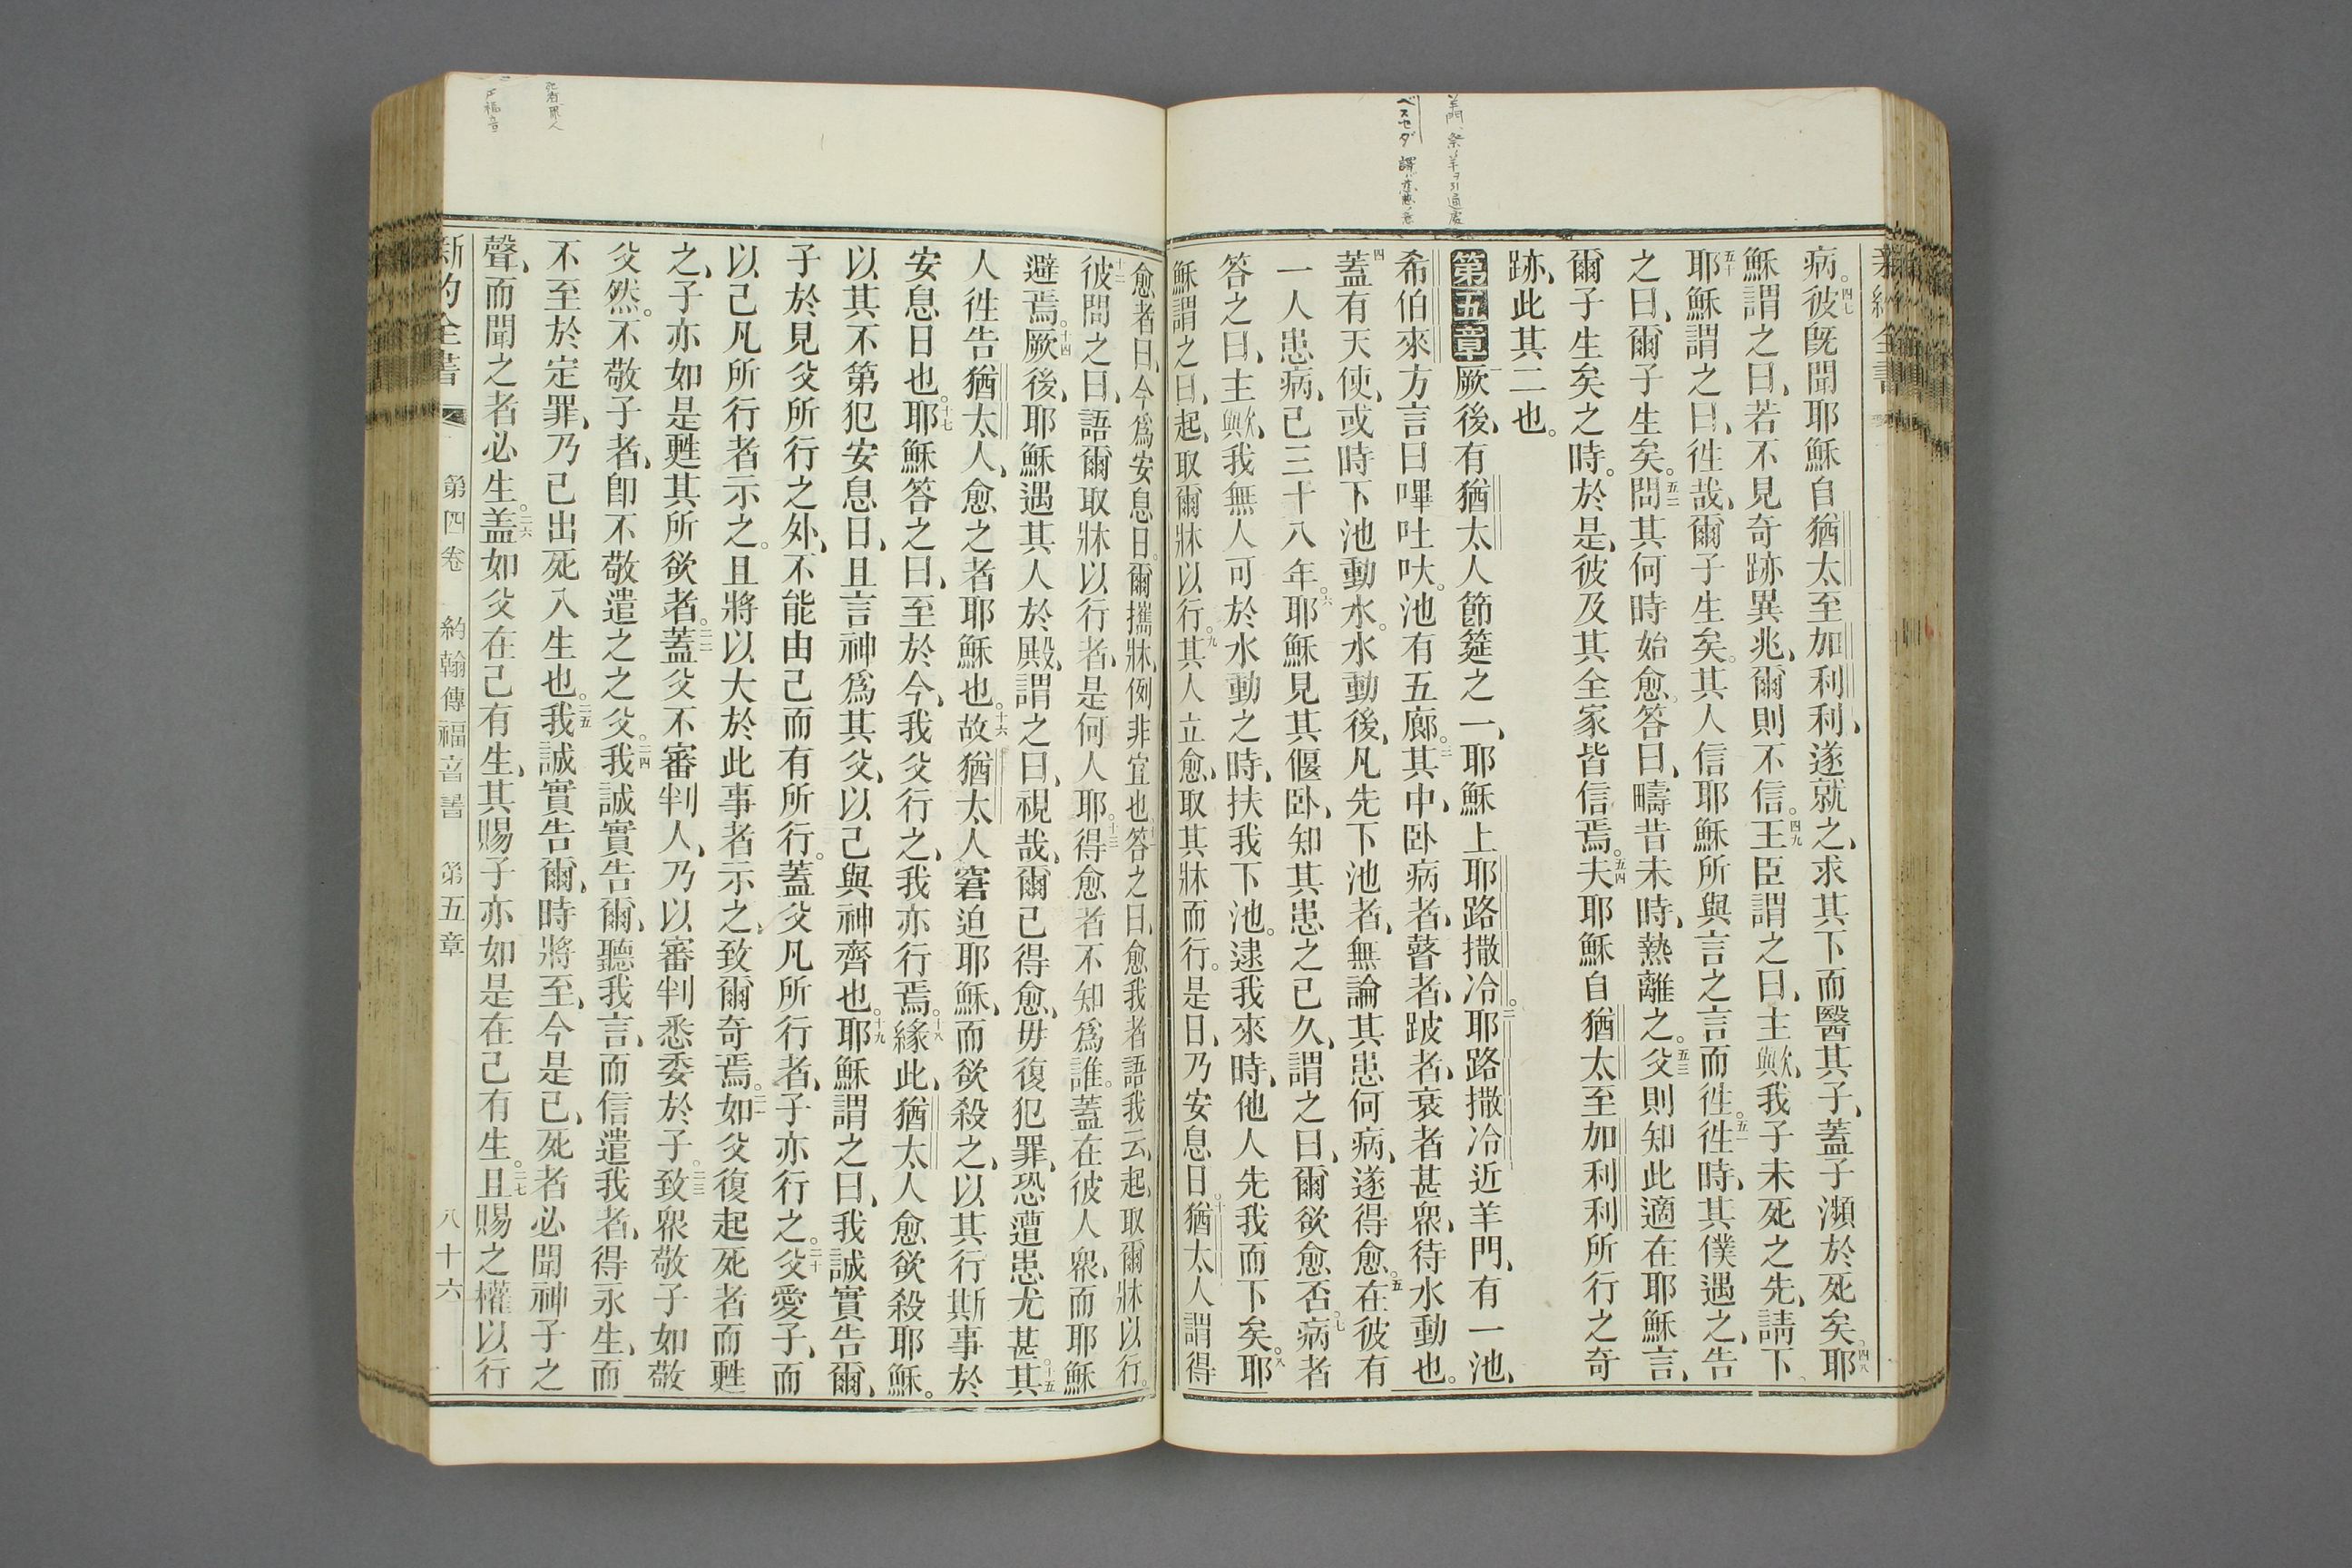 羊門 祭ノ羊ヲ引通處
ベスセダ
病。四七彼既聞耶穌自猶太至加利利、遂就之、求其下而醫其子、蓋子瀕於死矣。四八耶
穌謂之曰、若不見奇跡異兆、爾則不信。四九王臣謂之曰、主歟、我子未死之先、請下、
五十耶穌謂之曰、徃哉、爾子生矣。其人信耶穌所與言之言而徃。五一徃時、其僕遇之、告
之曰、爾子生矣。五二問其何時始愈、答曰、疇昔未時、熱離之。五三父則知此適在耶穌言、
爾子生矣之時。於是、彼及其全家皆信焉。五四夫耶穌自猶太至加利利所行之奇
跡、此其二也。
第五章一厥後、有猶太人節筵之一、耶穌上耶路撒冷。二耶路撒冷近羊門、有一池、
希伯來方言曰嗶吐吠。池有五廊。三其中、卧病者、瞽者、跛者、衰者甚衆、待水動也。
四蓋有天使、或時下池動水。水動後、凡先下池者、無論其患何病、遂得愈。五在彼有
一人患病、已三十八年。六耶穌見其偃卧、知其患之已久、謂之曰、爾欲愈否。七病者
答之曰、主歟、我無人可於水動之時、扶我下池。逮我來時、他人先我而下矣。八耶
穌謂之曰、起、取爾牀以行。九其人立愈、取其牀而行。是日、乃安息日。十猶太人謂得
愈者曰、今爲安息日。爾攜牀、例非宜也。十一答之曰、愈我者語我云、起、取爾牀以行。
十二彼問之曰、語爾取牀以行者、是何人耶。十三得愈者不知爲誰。蓋在彼人衆、而耶穌
避焉。十四厥後、耶穌遇其人於殿、謂之曰、視哉、爾已得愈、毋復犯罪、恐遭患尤甚。十五其
人徃告猶太人、愈之者耶穌也。十六故猶太人窘迫耶穌、而欲殺之、以其行斯事於
安息日也。十七耶穌答之曰、至於今、我父行之、我亦行焉。十八緣此、猶太人愈欲殺耶穌。
以其不第犯安息日、且言神爲其父、以己與神齊也。十九耶穌謂之曰、我誠實告爾、
子於見父所行之外、不能由己而有所行。蓋父凡所行者、子亦行之。二十父愛子、而
以己凡所行者示之。且將以大於此事者示之、致爾奇焉。二一如父復起死者而甦
之、子亦如是甦其所欲者。二二蓋父不審判人、乃以審判悉委於子。二三致衆敬子如敬
父然。不敬子者、卽不敬遣之之父。二四我誠實告爾、聽我言、而信遣我者、得永生、而
不至於定罪、乃已出死入生也。二五我誠實告爾、時將至、今是已、死者必聞神子之
聲、而聞之者必生。二六盖如父在己有生、其賜子亦如是在己有生。二七且賜之權以行
新約全書 第四卷 約翰傳福音書 第五章 八十六